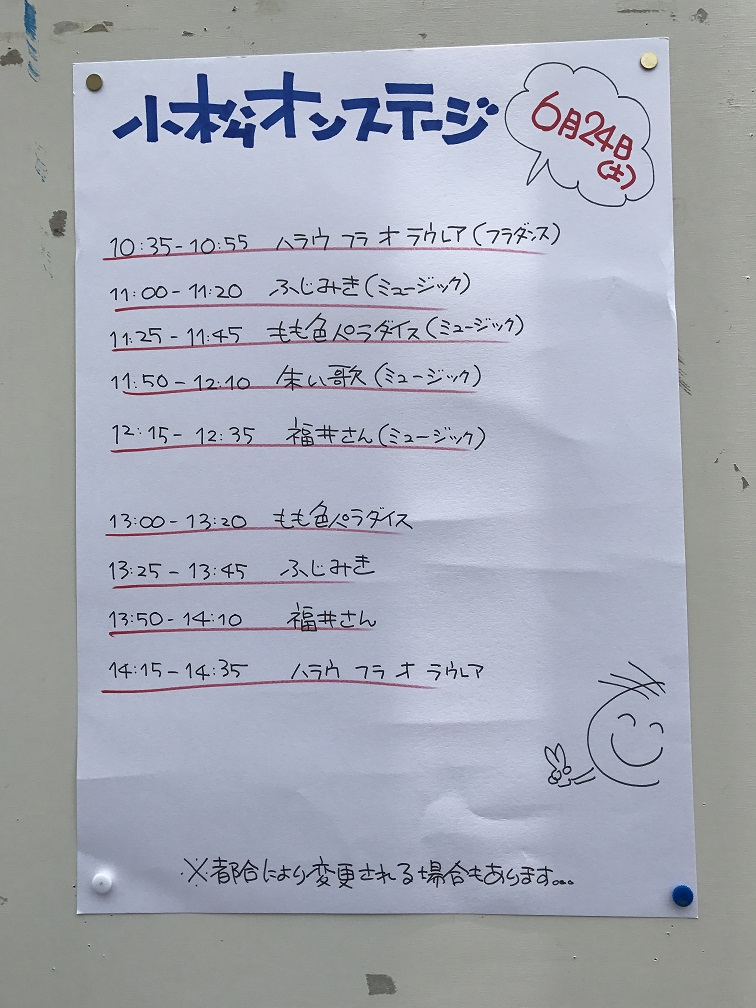 小松オンステージ
6月24日
(土)
10:35-10:55 ハラウ フラ オ ラウレア(フラダンス)
11:00-11:20 ふじみき(ミュージック)
11:25-11:45 もも色パラダイス(ミュージック)
11:50-12:10 朱い歌(ミュージック)
12:15-12:35 福井さん(ミュージック)
13:00-13:20 もも色パラダイス
13:25-13:45 ふじみき
13:50-14:10 福井さん
14:15-14:35 ハラウ フラ オ ラウレア
※都合により変更される場合もあります...